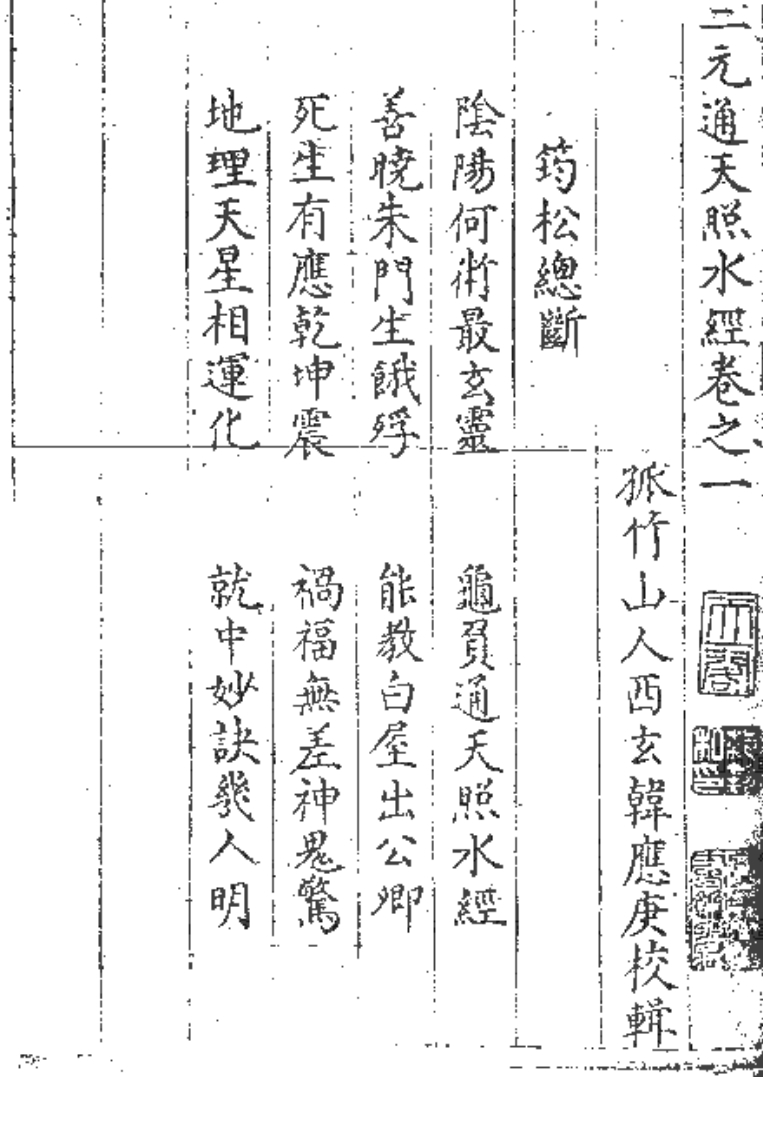 二元通天照水經卷之一
孤竹山人西玄韓應庚校輯
筠松總斷
陰陽何術最玄靈　龜負通天照水經
善曉朱門生餓殍　能教白屋出公卿
死生有應乾坤震　禍福無差神鬼驚
地理天星相運化　就中妙訣幾人明